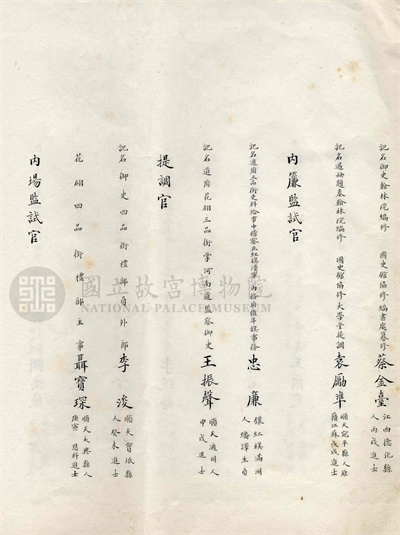 記名御史翰林院編修 國史館協修編書處纂修 蔡金臺 江西德化縣人丙戌進士
記名道府翰林院編修 國史館協修大學堂提調 袁勵準 順天宛平縣人原籍江蘇戊戌進士
內簾監試官
忠廉 鑲紅旗滿洲人繙譯生員
記名道府花翎三品銜掌河南道監察御史 王振聲 順天通州人甲戌進士
提調官
記名御史四品銜禮部員外郎 李浚 順天寶坻縣人癸未進士
花翎四品銜禮部主事 聶寶琛 順天大興縣人庚寅恩科進士
內場監試官
國立故宮博物院
NATIONAL PALACE MUSEUM